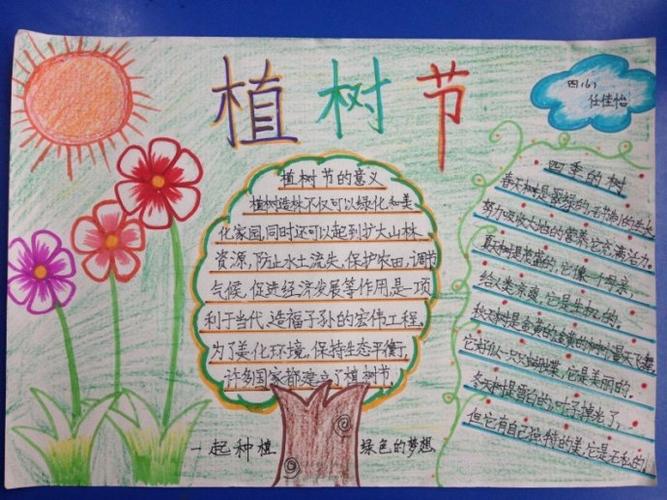 植树节
四(6)
任佳怡
植树节的意义
植树造林不仅可以绿化和美
化家园,同时还可以起到扩大山林
资源,防止水土流失,保护农田,调节
气候,促进经济发展等作用,是一项
利于当代,造福子孙的宏伟工程。
为了美化环境,保持生态平衡,
许多国家都建立了植树节
一起种植
绿色的梦想
四季的树
春天树是翠绿的,
努力吸收大地的营养,它充满活力。
夏天树是浓荫的,它像一个母亲,
给人类凉爽,它是生机的。
秋天树是金黄的,金黄的树叶漫天飞舞,
它好似一只只蝴蝶,它是美丽的。
冬天树是雪白的,叶子掉光了,
但它有自己独特的美,它是无私的!